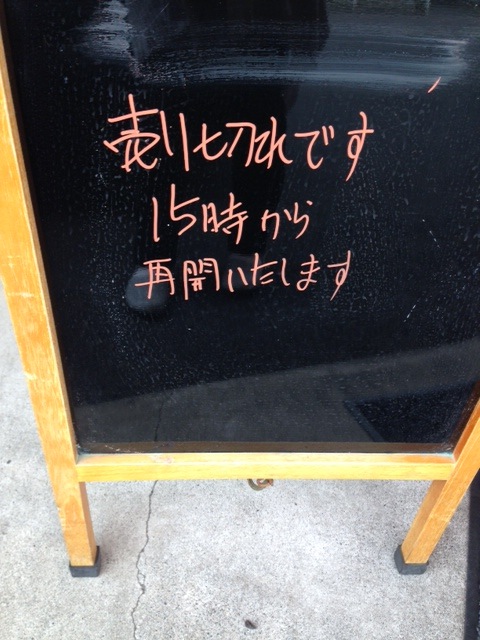 売り切れです
15時から
再開いたします